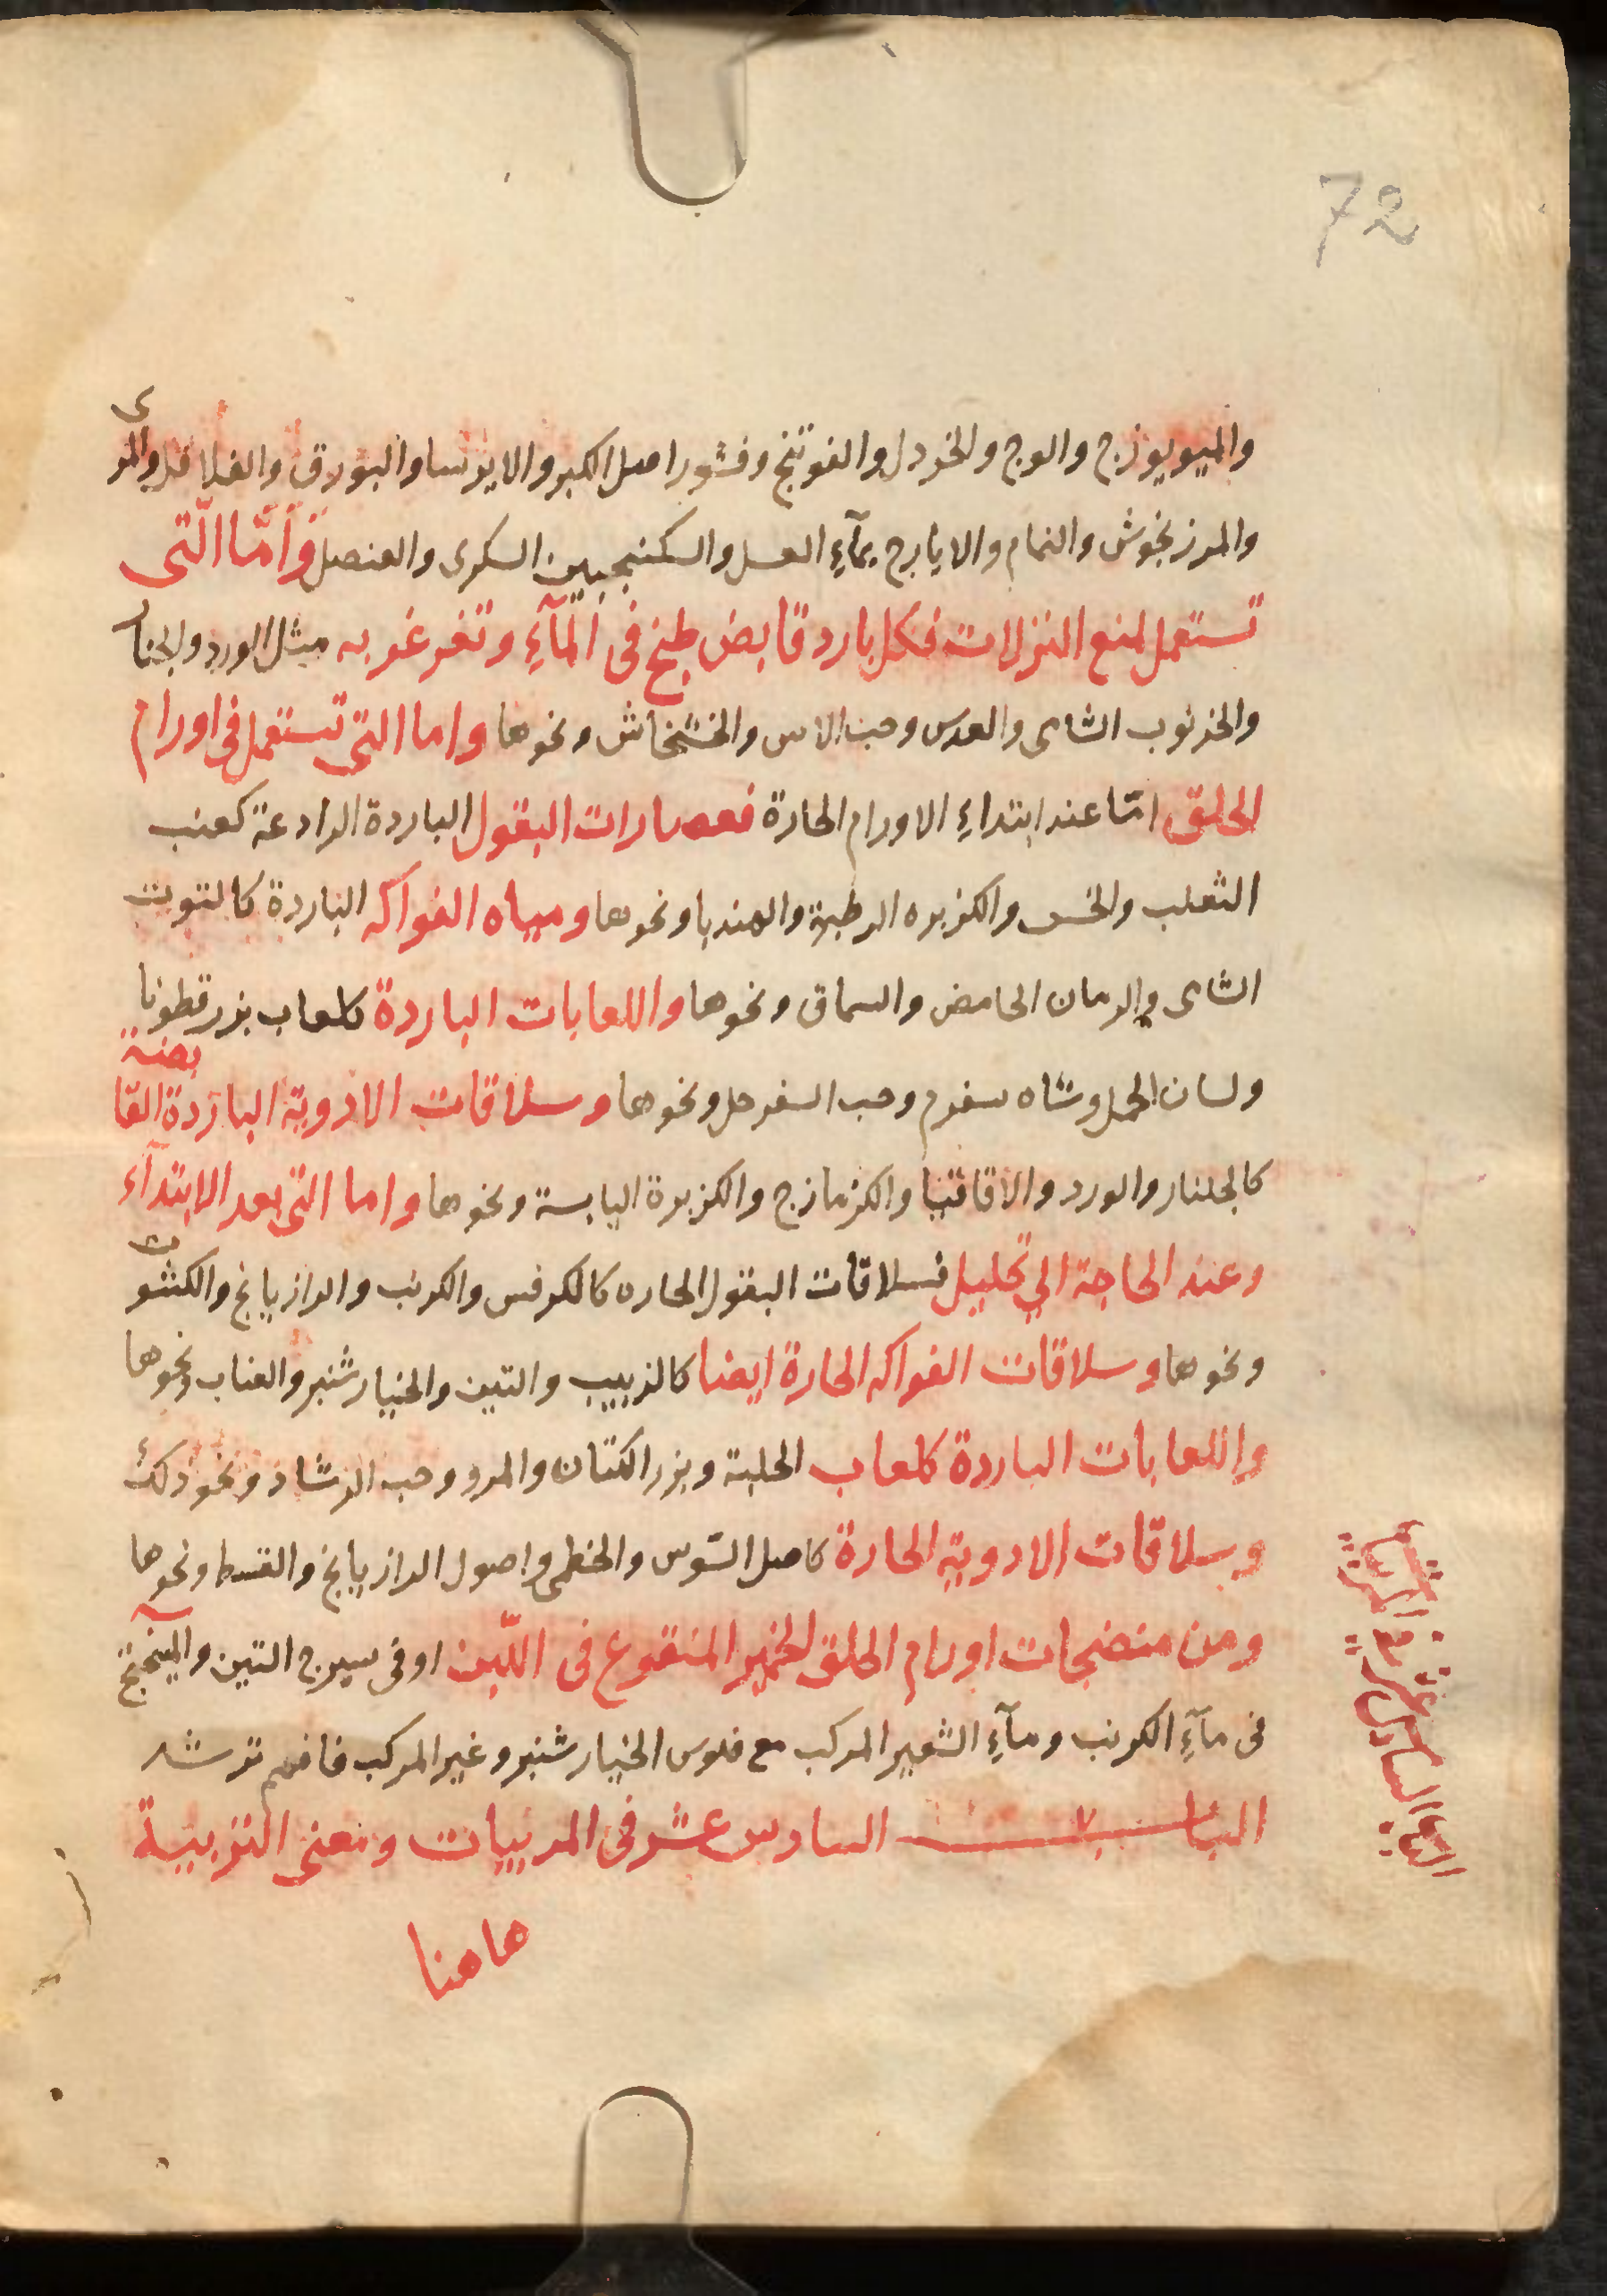 72
والميويوزج والوج والخردل والفوتنج وقشور اصل الكبر والايرسا والبورق والفلافل والمرى
والمرزنجوش والنمام والايارج بمآءِ العسل والسكنجبين السكرى والعنصل وَامّا الّتى
تستعمل لمنع النزلات فكل بارد قابض طبخ فى المآءِ وتغرغر به مثل الورد والجنار
والخرنوب الشامى والعدس وحب الاس والخشخاش ونحوها واما التى تستعمل فى اورام
الحلق امّا عند ابتداءِ الاورام الحارة فعصارات البقول الباردة الرادعة كعنب
الثعلب والخس والكزبره الرطبة والهندبا ونحوها ومياه الفواكه الباردة كالتوت
الشامى والرمان الحامض والسماق ونحوها واللعابات الباردة كلعاب بزرقطونا
ولسان الحمل وشاه سفرم وحب السفرجل ونحوها وسلاقات الادوية الباردة القابضة
كالجلنار والورد والاقاقيا والكزمازج والكزبرة اليابسة ونحوها واما التى بعد الابتدآء
وعند الحاجة الي تحليل فسلاقات البقول الحاره كالكرفس والكرنب والرازيانج والكشوث
ونحوها وسلاقات الفواكه الحارة ايضا كالزبيب والتين والخيارشنبر والعناب ونحوها
واللعابات الباردة كلعاب الحلبة وبزر الكتان والمرو وحب الرشاد ونحو ذلك
وسلاقات الادوية الحارة كاصل السّوس والخطمى واصول الرازيانج والقسط ونحوها
ومن منضجات اورام الحلق الخمير المنقوع فى اللّبن او فى سيرج التين والميبختج
فى مآءِ الكرنب ومآءِ الشعير المركب مع فلوس الخيارشنبر وغير المركب فافهم ترشد
الباب السادس عشر فى المربيات ومعنى التربية
هاهنا
الباب السادس عشر فى المربيات